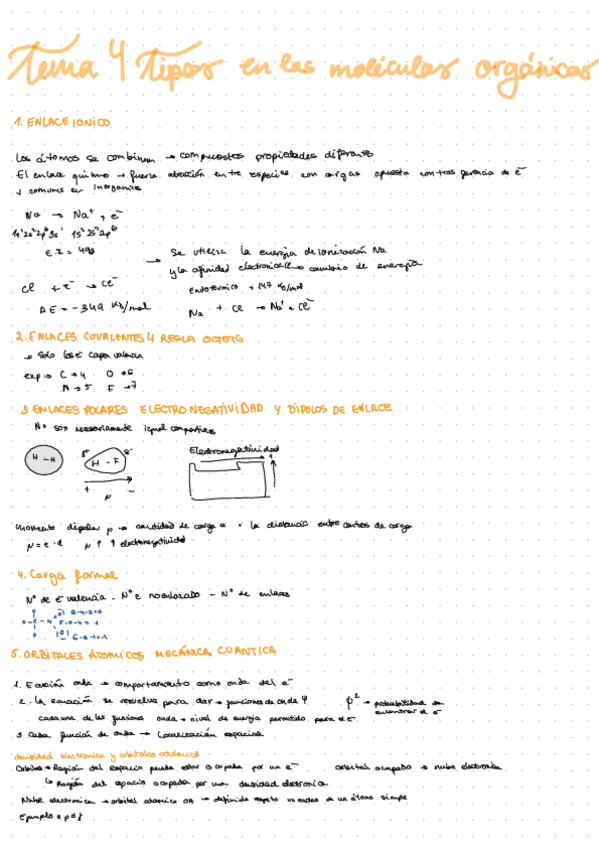 Tema 4 Tipos en las moléculas orgánicas
1. ENLACE IONICO
Los átomos se combinan → compuestos propiedades diferentes
El enlace químico → fuerza atracción entre especies con cargas opuesta con transferencia de e⁻
y comunes en inorganica
Na → Na⁺ + e⁻
1s² 2s² 2p⁶ 3s¹ 1s² 2s² 2p⁶
E.I = 496
→ Se utiliza la energia de ionización Na
y la afinidad electronica Cl → cambio de energía
Cl + e⁻ → Cl⁻
Endotermico + 147 KJ/mol
AE = -349 KJ/mol
Na + Cl → Na⁺ + Cl⁻
2. ENLACES COVALENTES Y REGLA OCTETO
→ Solo los e⁻ capa valencia
C → 4 O → 6
N → 5 F → 7
3 ENLACES POLARES ELECTRONEGATIVIDAD Y DIPOLOS DE ENLACE
No son necesariamente igual compartidos
H - H
δ⁺ δ⁻
H - F
Electronegatividad
+
+ −
μ
momento dipolar μ → cantidad de carga e · la distancia entre centros de carga
μ = e · d μ ↑ ↑ electronegatividad
4. Carga formal
Nº de e⁻ valencia - Nº e⁻ no enlazado - Nº de enlaces
5. ORBITALES ÁTOMICOS MECÁNICA CUANTICA
1. Ecuación onda → comportamiento como onda del e⁻
2. La ecuación se resuelve para dar → funciones de onda ψ
ψ² → probabilidad de
encontrar el e⁻
cada una de las funciones onda → nivel de energia permitido para el e⁻
3 Cada función de onda → Localización espacial
densidad electronica y orbitales atómicos
Orbital → Región del espacio puede estar ocupada por un e⁻ orbital ocupado → nube electronica
↳ Región del espacio ocupada por una densidad electronica
Nube electronica → orbital atomico OA → definido respeto un átomo simple
Ejemplo s p d f